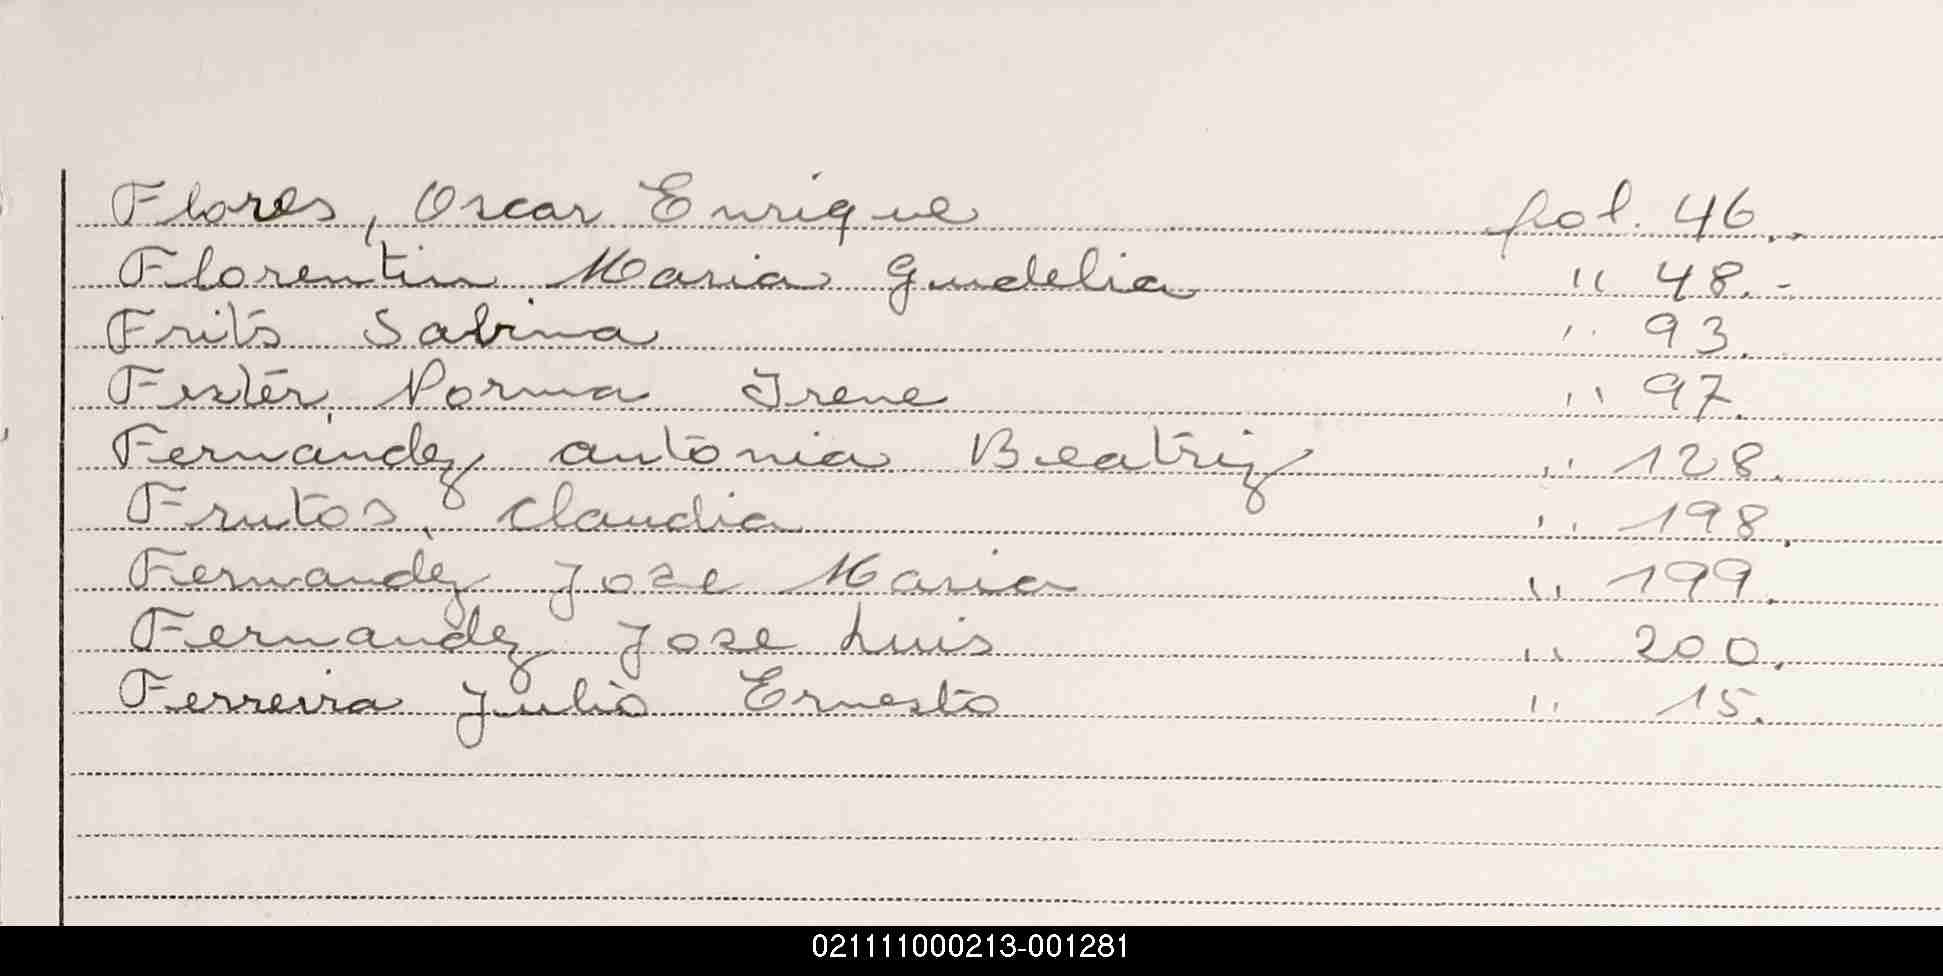 Flores, Oscar Enrique fol. 46..
Florentin Maria Gudelia " 48.-
Frits Sabina " 93.
Fester, Norma Irene " 97.
Fernandez Antonia Beatriz " 128.
Frutos, Claudia " 198.
Fernandez Jose Maria " 199.
Fernandez Jose Luis " 200.
Ferreira Julio Ernesto " 15.
021111000213-001281